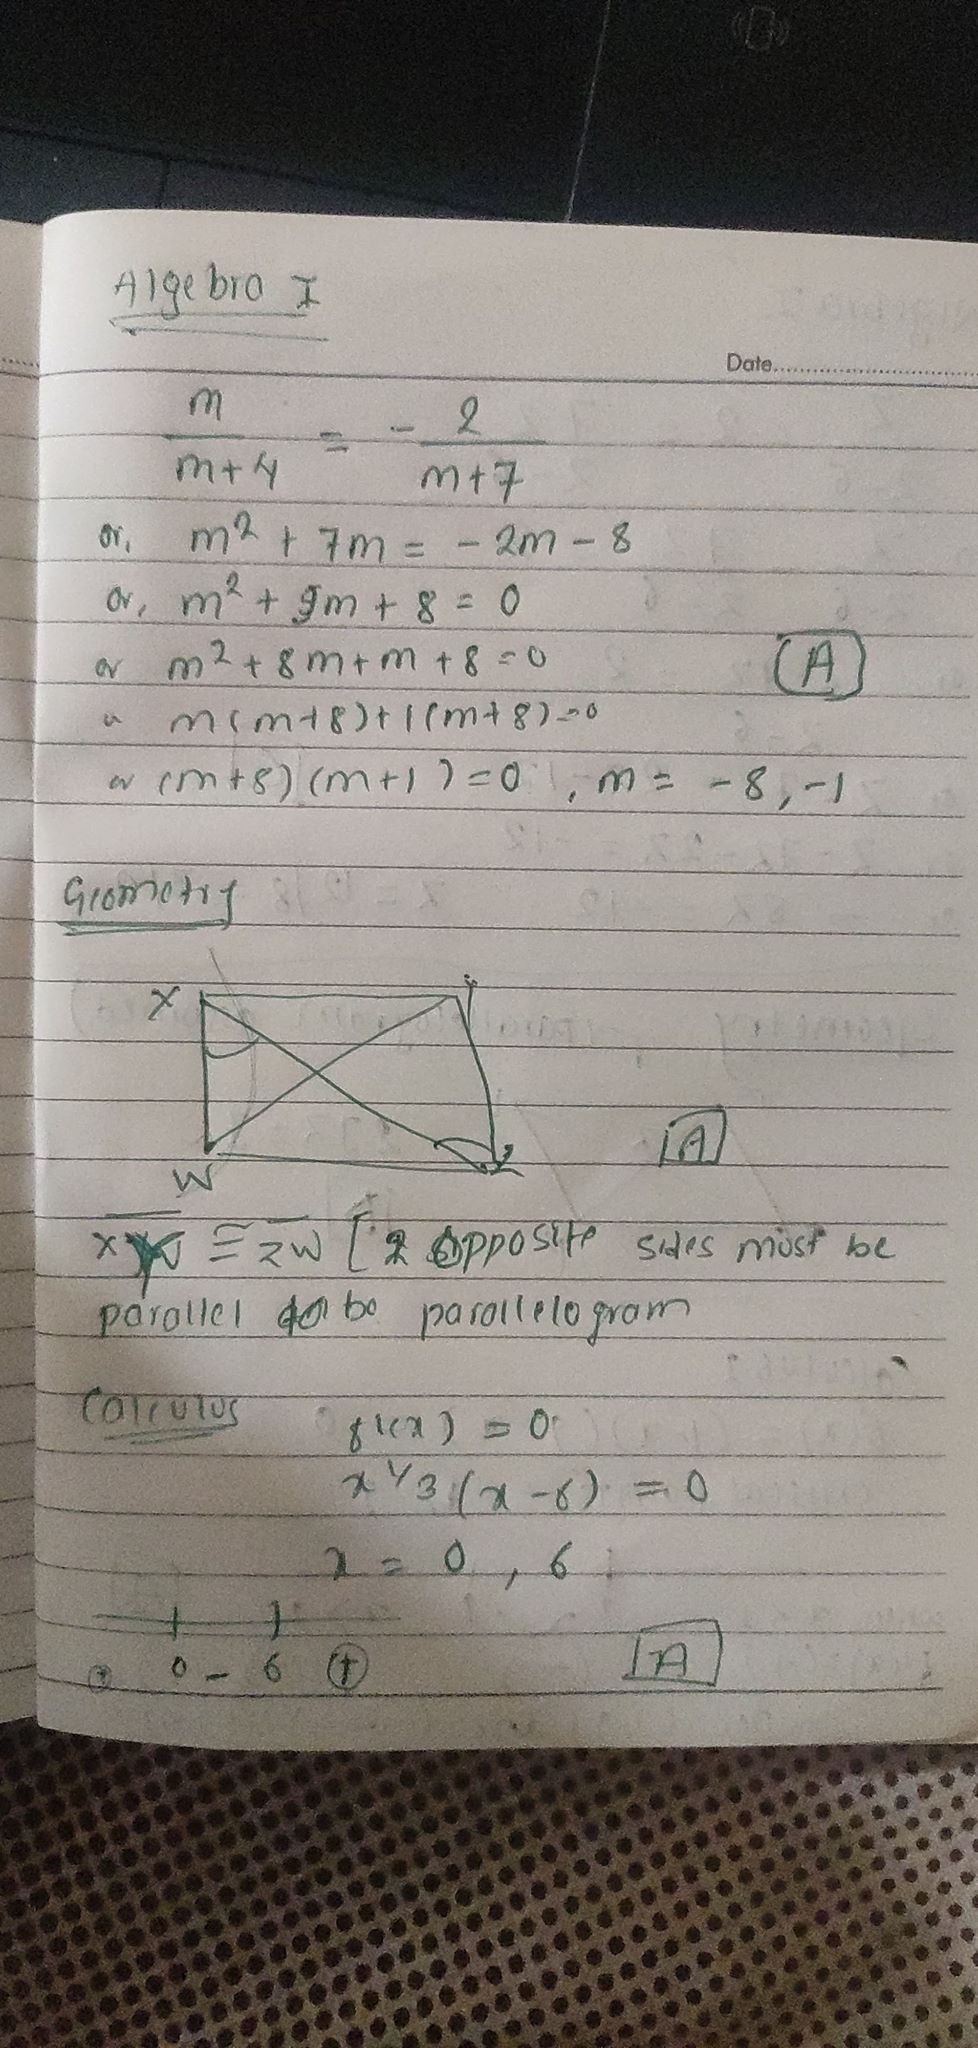 Algebra I
Date
m/m+4 = - 2/m+7
or, m² + 7m = - 2m - 8
or, m² + 9m + 8 = 0
or m² + 8m + m + 8 = 0
A
m(m+8)+1(m+8)=0
or (m+8)(m+1)=0, m = -8, -1
Geometry
X
A
W
≅ ZW [ 2 opposite sides must be
parallel to be parallelogram
Calculus
f'(x) = 0
x^1/3 (x-6) = 0
x = 0, 6
+ 0 - 6 +
A